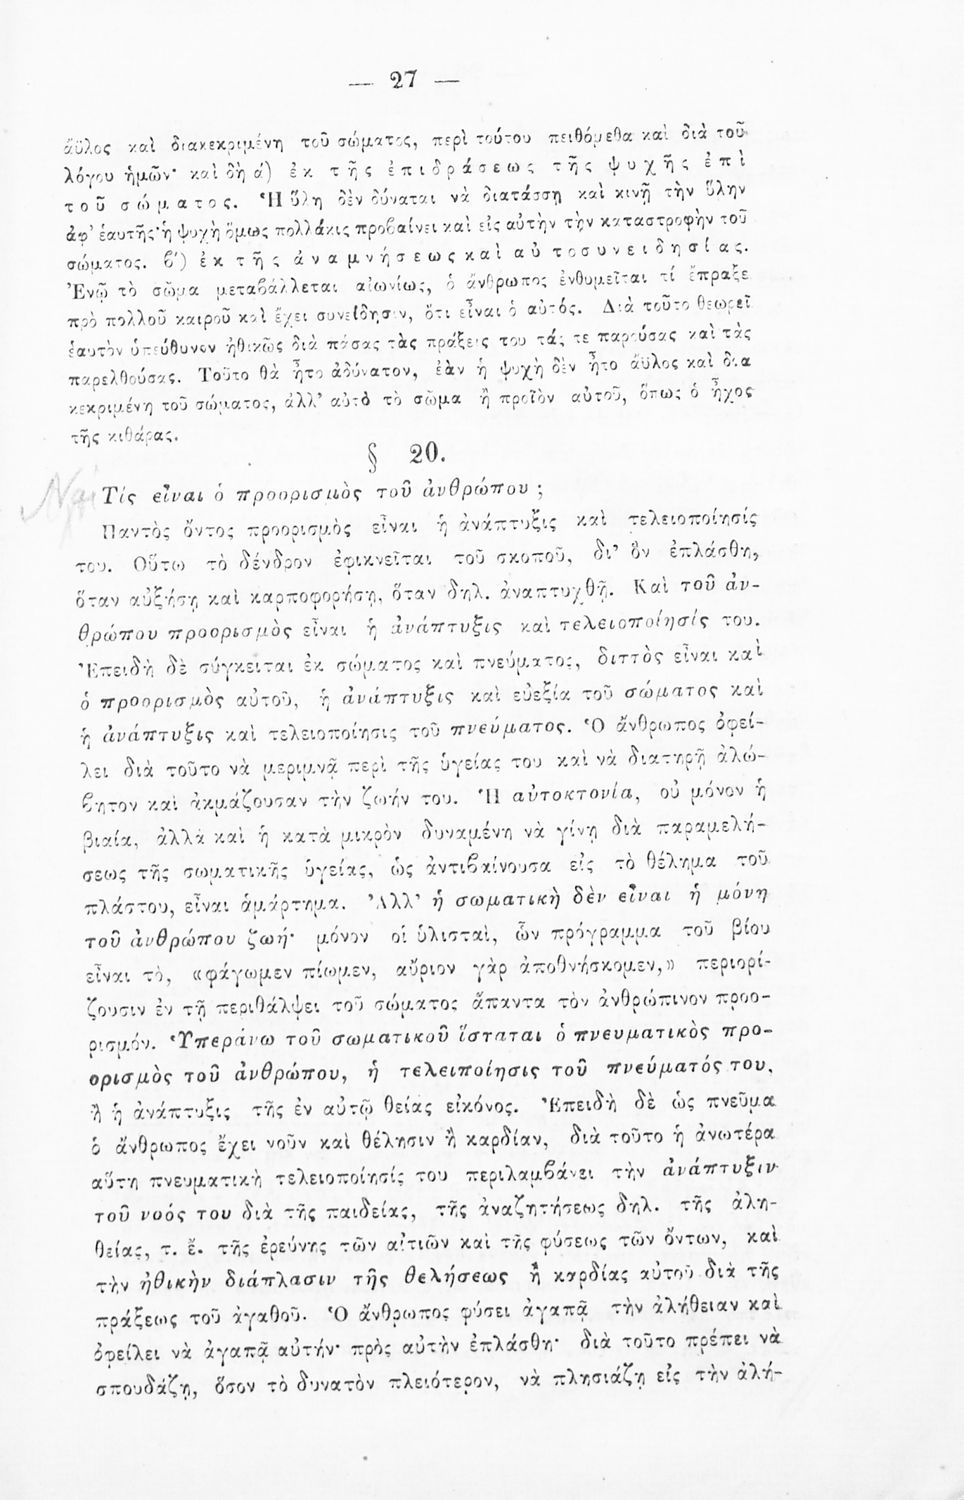 — 27 —
ἄϋλος καὶ διακεκριμένη τοῦ σώματος, περὶ τούτου πειθόμεθα καὶ διὰ τοῦ
λόγου ἡμῶν· καὶ δὴ α΄) ἐκ τῆς ἐπιδράσεως τῆς ψυχῆς ἐπὶ
τοῦ σώματος. Ἡ ὕλη δὲν δύναται νὰ διατάσσῃ καὶ κινῇ τὴν ὕλην
ἀφ' ἑαυτῆς· ἡ ψυχὴ ὅμως πολλάκις προβαίνει καὶ εἰς αὐτὴν τὴν καταστροφὴν τοῦ
σώματος. β΄) ἐκ τῆς ἀναμνήσεως καὶ αὐτοσυνειδησίας.
Ἐνῷ τὸ σῶμα μεταβάλλεται αἰωνίως, ὁ ἄνθρωπος ἐνθυμεῖται τί ἔπραξε
πρὸ πολλοῦ καιροῦ καὶ ἔχει συνείδησιν, ὅτι εἶναι ὁ αὐτός. Διὰ τοῦτο θεωρεῖ
ἑαυτὸν ὑπεύθυνον ἠθικῶς διὰ πάσας τὰς πράξεις του τάς τε παρούσας καὶ τὰς
παρελθούσας. Τοῦτο θὰ ἦτο ἀδύνατον, ἐὰν ἡ ψυχὴ δὲν ἦτο ἄϋλος καὶ δια
κεκριμένη τοῦ σώματος, ἀλλ' αὐτὸ τὸ σῶμα ἢ προϊὸν αὐτοῦ, ὅπως ὁ ἦχος
τῆς κιθάρας.
§ 20.
Τίς εἶναι ὁ προορισμὸς τοῦ ἀνθρώπου ;
Παντὸς ὄντος προορισμὸς εἶναι ἡ ἀνάπτυξις καὶ τελειοποίησίς
του. Οὕτω τὸ δένδρον ἐφικνεῖται τοῦ σκοποῦ, δι' ὃν ἐπλάσθη,
ὅταν αὐξήσῃ καὶ καρποφορήσῃ, ὅταν δηλ. ἀναπτυχθῇ. Καὶ τοῦ ἀν-
θρώπου προορισμὸς εἶναι ἡ ἀνάπτυξις καὶ τελειοποίησίς του.
Ἐπειδὴ δὲ σύγκειται ἐκ σώματος καὶ πνεύματος, διττὸς εἶναι καὶ
ὁ προορισμὸς αὐτοῦ, ἡ ἀνάπτυξις καὶ εὐεξία τοῦ σώματος καὶ
ἡ ἀνάπτυξις καὶ τελειοποίησις τοῦ πνεύματος. Ὁ ἄνθρωπος ὀφεί-
λει διὰ τοῦτο νὰ μεριμνᾷ περὶ τῆς ὑγείας του καὶ νὰ διατηρῇ ἀλώ-
βητον καὶ ἀκμάζουσαν τὴν ζωήν του. Ἡ αὐτοκτονία, οὐ μόνον ἡ
βιαία, ἀλλὰ καὶ ἡ κατὰ μικρὸν δυναμένη νὰ γίνῃ διὰ παραμελή-
σεως τῆς σωματικῆς ὑγείας, ὡς ἀντιβαίνουσα εἰς τὸ θέλημα τοῦ
πλάστου, εἶναι ἁμάρτημα. Ἀλλ' ἡ σωματικὴ δὲν εἶναι ἡ μόνη
τοῦ ἀνθρώπου ζωή· μόνον οἱ ὑλισταὶ, ὧν πρόγραμμα τοῦ βίου
εἶναι τὸ, «φάγωμεν πίωμεν, αὔριον γὰρ ἀποθνήσκομεν,» περιορί-
ζουσιν ἐν τῇ περιθάλψει τοῦ σώματος ἅπαντα τὸν ἀνθρώπινον προο-
ρισμόν. Ὑπεράνω τοῦ σωματικοῦ ἵσταται ὁ πνευματικὸς προ-
ορισμὸς τοῦ ἀνθρώπου, ἡ τελειποίησις τοῦ πνεύματός του,
ἢ ἡ ἀνάπτυξις τῆς ἐν αὐτῷ θείας εἰκόνος. Ἐπειδὴ δὲ ὡς πνεῦμα
ὁ ἄνθρωπος ἔχει νοῦν καὶ θέλησιν ἢ καρδίαν, διὰ τοῦτο ἡ ἀνωτέρα
αὕτη πνευματικὴ τελειοποίησίς του περιλαμβάνει τὴν ἀνάπτυξιν
τοῦ νοός του διὰ τῆς παιδείας, τῆς ἀναζητήσεως δηλ. τῆς ἀλη-
θείας, τ. ἔ. τῆς ἐρεύνης τῶν αἰτιῶν καὶ τῆς φύσεως τῶν ὄντων, καὶ
τὴν ἠθικὴν διάπλασιν τῆς θελήσεως ἢ καρδίας αὐτοῦ διὰ τῆς
πράξεως τοῦ ἀγαθοῦ. Ὁ ἄνθρωπος φύσει ἀγαπᾷ τὴν ἀλήθειαν καὶ
ὀφείλει νὰ ἀγαπᾷ αὐτήν· πρὸς αὐτὴν ἐπλάσθη· διὰ τοῦτο πρέπει νὰ
σπουδάζῃ, ὅσον τὸ δυνατὸν πλειότερον, νὰ πλησιάζῃ εἰς τὴν ἀλή-